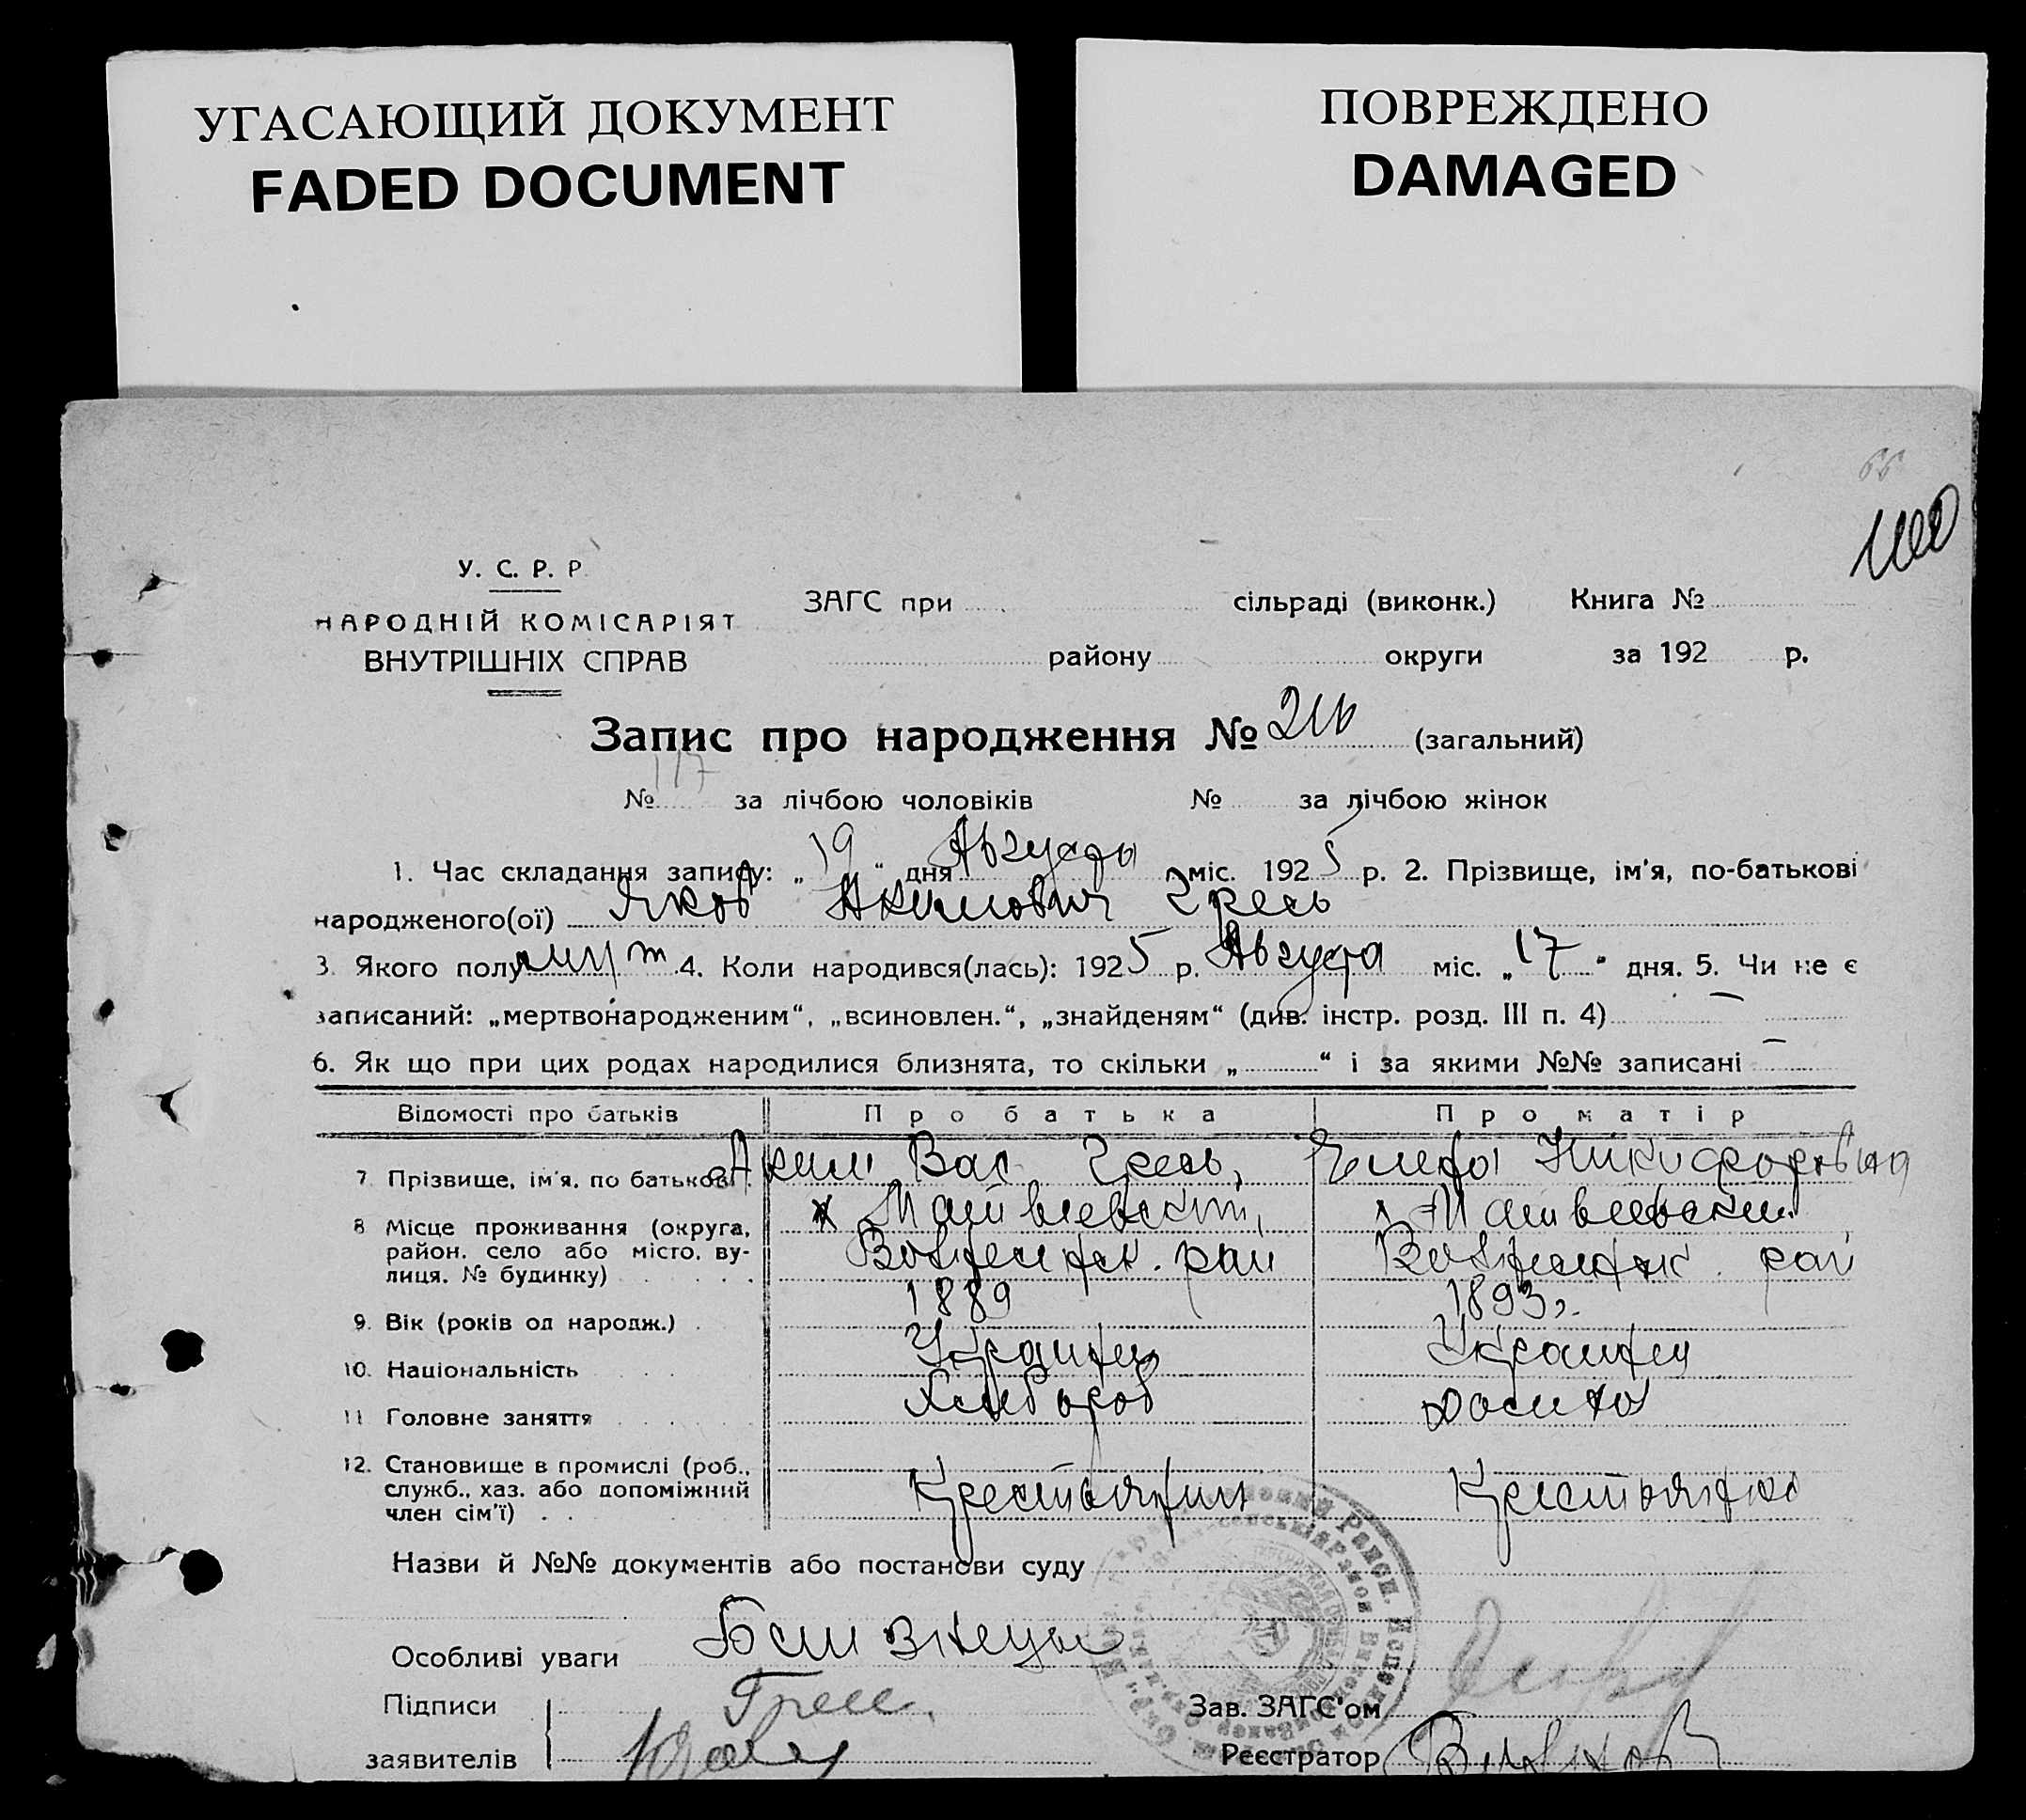 УГАСАЮЩИЙ ДОКУМЕНТ
FADED DOCUMENT
ПОВРЕЖДЕНО
DAMAGED
У. С. Р. Р
НАРОДНІЙ КОМІСАРІЯТ
ВНУТРІШНІХ СПРАВ
ЗАГС при сільраді (виконк.) Книга №
району округи за 192 р.
Запис про народження № (загальний)
№ 117 за лічбою чоловіків № за лічбою жінок
1. Час складання запису: „19“ дня Августа міс. 1925 р. 2. Прізвище, ім'я, по-батькові
народженого(ої) Яков Акимович Гресь
3. Якого полу муж 4. Коли народився(лась): 1925 р. Августа міс. „17“ дня. 5. Чи не є
записаний: „мертвонародженим“, „всиновлен.“, „знайденям“ (див. інстр. розд. III п. 4) —
6. Як що при цих родах народилися близнята, то скільки „ “ і за якими №№ записані —
Відомості про батьків Про батька Про матір
7 Прізвище, ім'я, по батькові Аким Вас Гресь, Никифоровна
8 Місце проживання (округа,
район, село або місто, ву-
лиця, № будинку)
х Матвеевский, х Матвеевский
Вознесенск. рай Вознесенск. рай
9. Вік (років од народж.) 1889 1893 г.
10. Національність Украинец Украинец
11 Головне заняття Хлебороб
12. Становище в промислі (роб.,
служб., хаз. або допоміжний
член сім'ї)
Крестьянин Крестьянка
Назви й №№ документів або постанови суду
Особливі уваги
Підписи Гресь
заявителів
Зав. ЗАГС'ом
Реєстратор